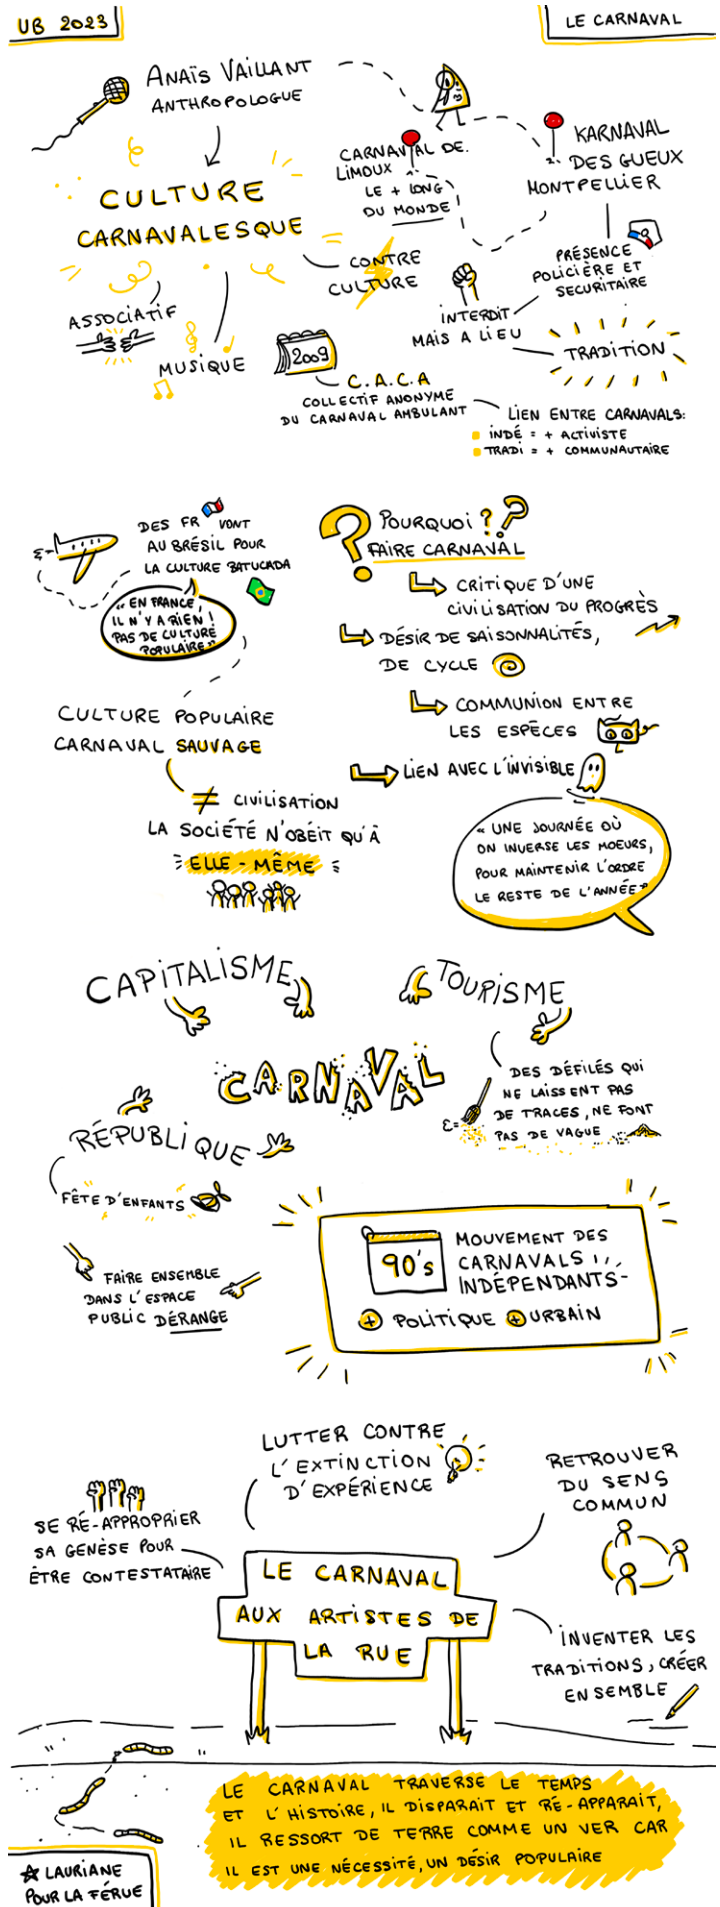 UB 2023
LE CARNAVAL
ANAÏS VAILLANT
ANTHROPOLOGUE
CULTURE
CARNAVALESQUE
ASSOCIATIF
MUSIQUE
CONTRE
CULTURE
CARNAVAL DE
LIMOUX
LE + LONG
DU MONDE!
KARNAVAL
DES GUEUX
MONTPELLIER
PRÉSENCE
POLICIÈRE ET
SECURITAIRE
INTERDIT
MAIS A LIEU
TRADITION
2009
C.A.C.A
COLLECTIF ANONYME
DU CARNAVAL AMBULANT
LIEN ENTRE CARNAVALS:
INDÉ = + ACTIVISTE
TRADI = + COMMUNAUTAIRE
DES FR VONT
AU BRÉSIL POUR
LA CULTURE BATUCADA
"EN FRANCE,
IL N'Y A RIEN!
PAS DE CULTURE
POPULAIRE"
CULTURE POPULAIRE
CARNAVAL SAUVAGE
≠ CIVILISATION
LA SOCIÉTÉ N'OBÉIT QU'À
ELLE-MÊME
? POURQUOI ??
FAIRE CARNAVAL
CRITIQUE D'UNE
CIVILISATION DU PROGRÈS
DÉSIR DE SAISONNALITÉS,
DE CYCLE
COMMUNION ENTRE
LES ESPÈCES
LIEN AVEC L'INVISIBLE
"UNE JOURNÉE OÙ
ON INVERSE LES MOEURS,
POUR MAINTENIR L'ORDRE
LE RESTE DE L'ANNÉE"
CAPITALISME
TOURISME
CARNAVAL
DES DÉFILÉS QUI
NE LAISSENT PAS
DE TRACES, NE FONT
PAS DE VAGUE
RÉPUBLIQUE
FÊTE D'ENFANTS
FAIRE ENSEMBLE
DANS L'ESPACE
PUBLIC DÉRANGE
90's
MOUVEMENT DES
CARNAVALS
INDÉPENDANTS
+ POLITIQUE + URBAIN
LUTTER CONTRE
L'EXTINCTION
D'EXPÉRIENCE
RETROUVER
DU SENS
COMMUN
SE RÉ-APPROPRIER
SA GENÈSE POUR
ÊTRE CONTESTATAIRE
LE CARNAVAL
AUX ARTISTES DE
LA RUE
INVENTER LES
TRADITIONS, CRÉER
ENSEMBLE
LE CARNAVAL TRAVERSE LE TEMPS
ET L'HISTOIRE, IL DISPARAIT ET RÉ-APPARAIT,
IL RESSORT DE TERRE COMME UN VER CAR
IL EST UNE NÉCESSITÉ, UN DÉSIR POPULAIRE
LAURIANE
POUR LA FÉRUE